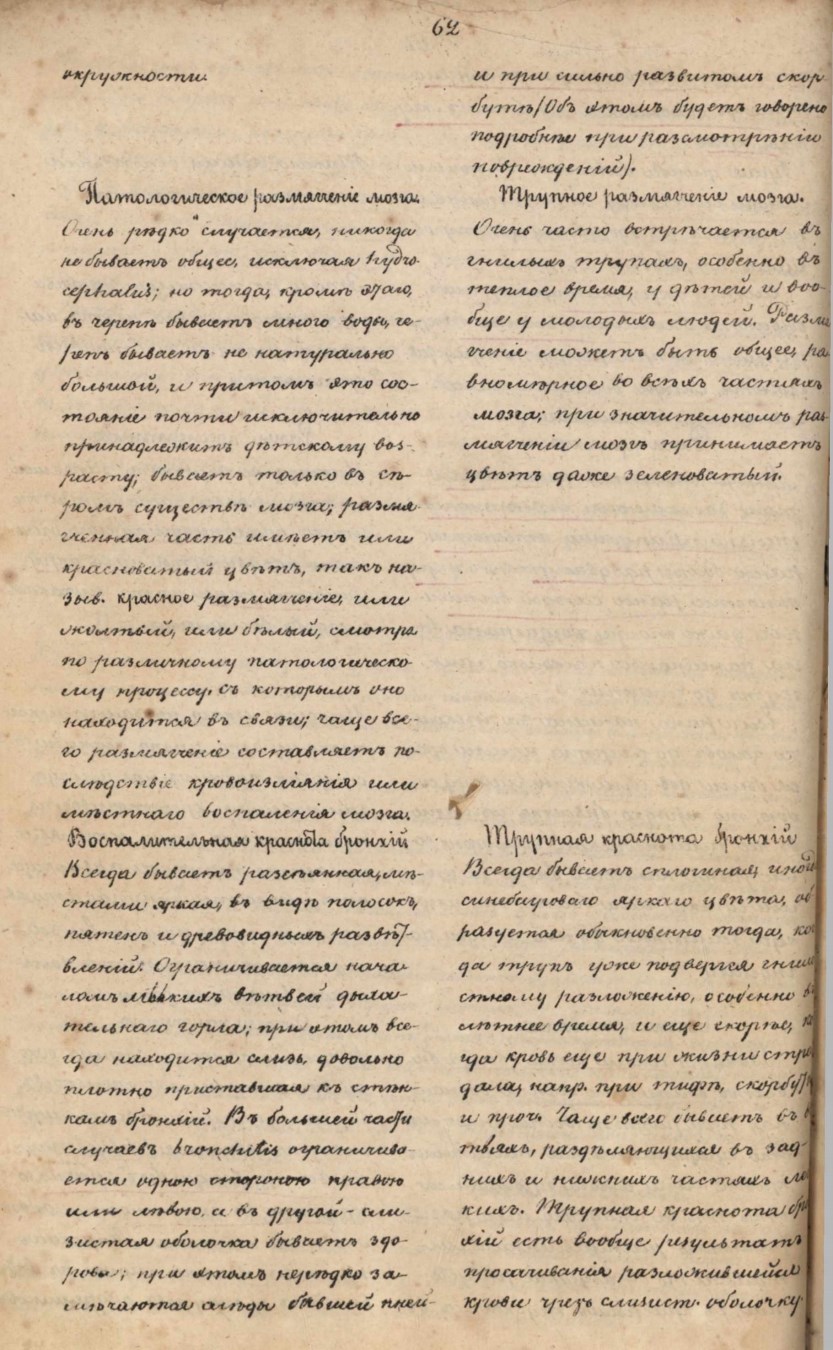 62
окружности
Патологическое размягченіе мозга.
Очень рѣдко случается, никогда
не бываетъ общее, исключая hydro-
cephalus; но тогда, кромѣ этаго,
въ черепѣ бываетъ много воды, че-
репъ бываетъ не натурально
большой, и притомъ это сос-
тояніе почти исключительно
принадлежитъ дѣтскому воз-
расту; бываетъ только въ сѣ-
ромъ существѣ мозга; размяг-
ченная часть имѣетъ или
красноватый цвѣтъ, такъ на-
зыв. красное размягченіе, или
желтый, или бѣлый, смотря
по различному патологическо-
му процессу, съ которымъ оно
находится въ связи; чаще все-
го размягченіе составляетъ по-
слѣдствіе кровоизліянія или
мѣстнаго воспаленія мозга.
Воспалительная краснота бронхій
Всегда бываетъ разсѣянная, мѣ-
стами яркая, въ видѣ полосокъ,
пятенъ и древовидныхъ развѣт-
вленій. Ограничивается нача-
ломъ мелкихъ вѣтвей дыха-
тельнаго горла; при этомъ все-
гда находится слизь, довольно
плотно приставшая къ стѣн-
камъ бронхій. Въ большей части
случаевъ bronchitis ограничива-
ется одною стороною правою
или лѣвою, а въ другой - сли-
зистая оболочка бываетъ здо-
рова; при этомъ нерѣдко за-
мѣчаются слѣды бывшей пней-
и при сильно развитомъ скор-
бутѣ (Объ этомъ будетъ говорено
подробнѣе при разсмотрѣніи
поврежденій).
Трупное размягченіе мозга.
Очень часто встрѣчается въ
гнилыхъ трупахъ, особенно въ
теплое время, у дѣтей и воо-
бще у молодыхъ людей. Размяг-
ченіе можетъ быть общее, ра-
вномѣрное во всѣхъ частяхъ
мозга; при значительномъ раз-
мягченіи мозгъ принимаетъ
цвѣтъ даже зеленоватый.
Трупная краснота бронхій
Всегда бываетъ сплошная, иной
синебагроваго яркаго цвѣта, об
разуется обыкновенно тогда, ко
да трупъ уже подвергся гнило
стному разложенію, особенно въ
лѣтнее время, и еще скорѣе, ко
гда кровь еще при жизни стра
дала, напр. при тифѣ, скорбутѣ
и проч. Чаще всего бываетъ въ
твяхъ, раздѣляющихся въ зад-
нихъ и нижнихъ частяхъ лег
кихъ. Трупная краснота брон
хій есть вообще результатъ
просачиванія разложившейся
крови чрезъ слизист. оболочку